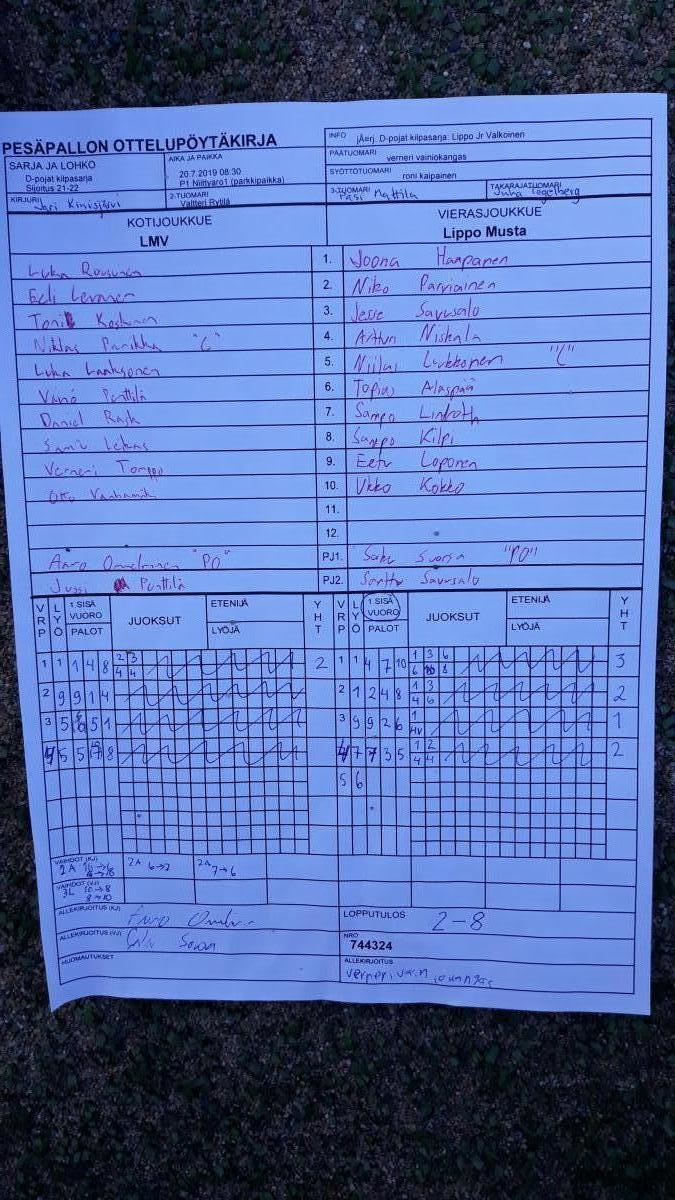 PESÄPALLON OTTELUPÖYTÄKIRJA
INFO jÄ¤rj. D-pojat kilpasarja: Lippo Jr Valkoinen
SARJA JA LOHKO
D-pojat kilpasarja
Sijoitus 21-22
AIKA JA PAIKKA
20.7.2019 08:30
P1 Niittyaro1 (parkkipaikka)
PÄÄTUOMARI verneri vainiokangas
SYÖTTÖTUOMARI roni kaipainen
KIRJURI Jari Kinisjärvi
2-TUOMARI Valtteri Rytilä
3-TUOMARI Pasi Mattila
TAKARAJATUOMARI Juha Fogelberg
KOTIJOUKKUE
LMV
VIERASJOUKKUE
Lippo Musta
Luka Rousunen 1. Joona Haapanen
Eeli 2. Niko Parviainen
Toni Koskinen 3. Jesse Savusalo
Niklas "C" 4. Artturi Niskala
Luka Laaksonen 5. Niilas Liukkonen "C"
Väinö Penttilä 6. Topias Alaspää
Daniel Rask 7. Sampo Lindroth
8. Sampo Kilpi
Verneri Torppo 9. Eetu Loponen
Otto 10. Ukko Kokko
11.
12.
Aaro "PO" PJ1. Saku Suorsa "PO"
Jussi Penttilä PJ2. Santtu Savusalo
VRP LYÖ 1 SISÄ VUORO PALOT JUOKSUT ETENIJÄ LYÖJÄ YHT VRP LYÖ 1 SISÄ VUORO PALOT JUOKSUT ETENIJÄ LYÖJÄ YHT
1 1 1 4 8 2 3 2 1 1 4 7 10 1 3 6 3
4 4 6 10 8
2 9 9 1 4 2 1 2 4 8 1 3 2
4 6
3 5 6 5 1 3 9 9 2 6 1 1
HV
4 5 5 7 8 4 7 7 3 5 1 2 2
4 4
5 6
VAIHDOT (KJ)
2A 2A 6→7 2A 7→6
VAIHDOT (VJ)
3L 10→8
8→10
ALLEKIRJOITUS (KJ)
LOPPUTULOS 2-8
ALLEKIRJOITUS (VJ)
NRO
744324
HUOMAUTUKSET
ALLEKIRJOITUS
verneri vainiokangas